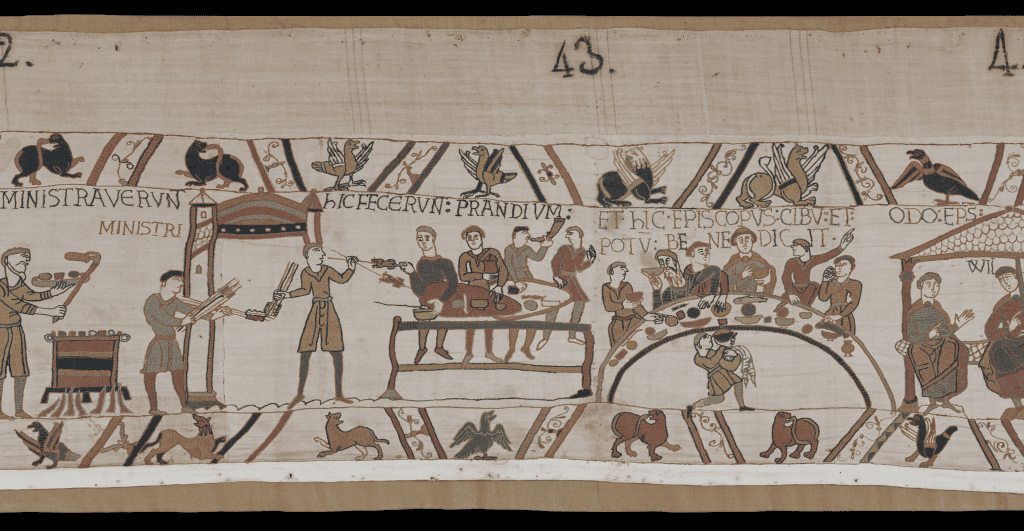 2.
43.
4
MINISTRAVERVN
MINISTRI
hIC FECERVN: PRANDIVM:
ET·hIC·EPISCOPVS:CIBV:ET:
POTV: BE NE DIC IT·
ODO:EPS:
WIL